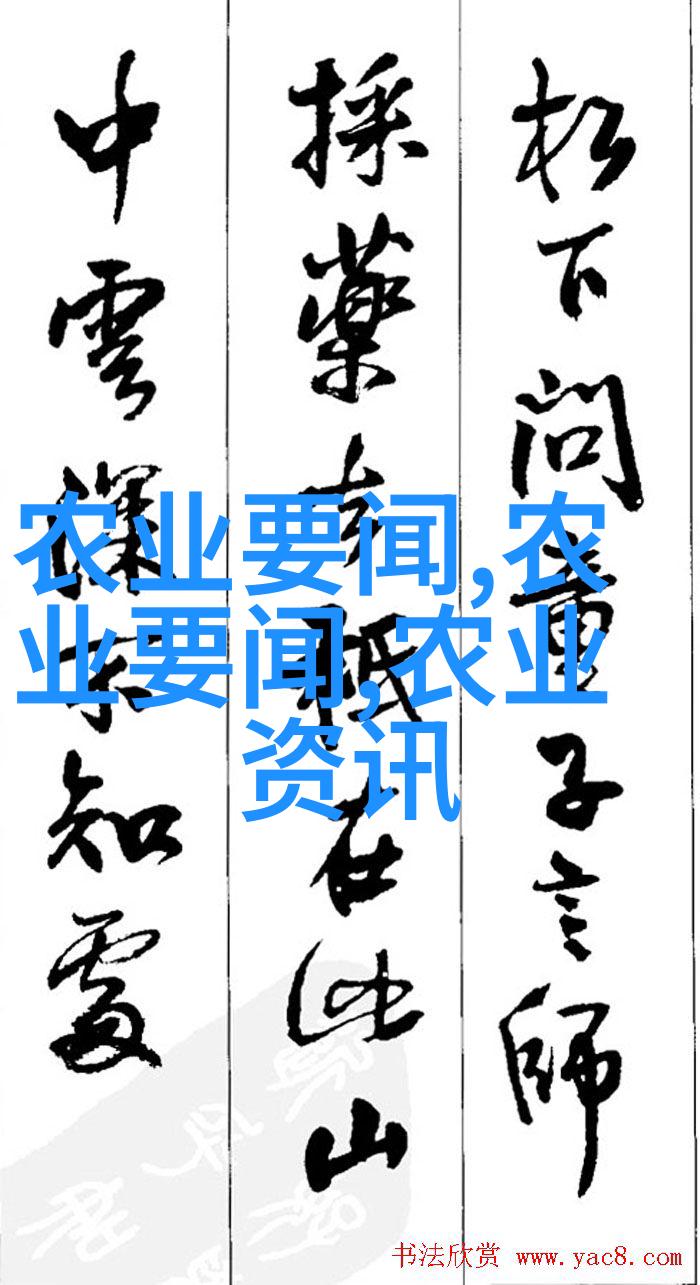 松下问童子言师
採薬去祗在此山
中雲深不知處
农业要闻,农
业要闻,农业
资讯
书法欣赏 www.yac8.com